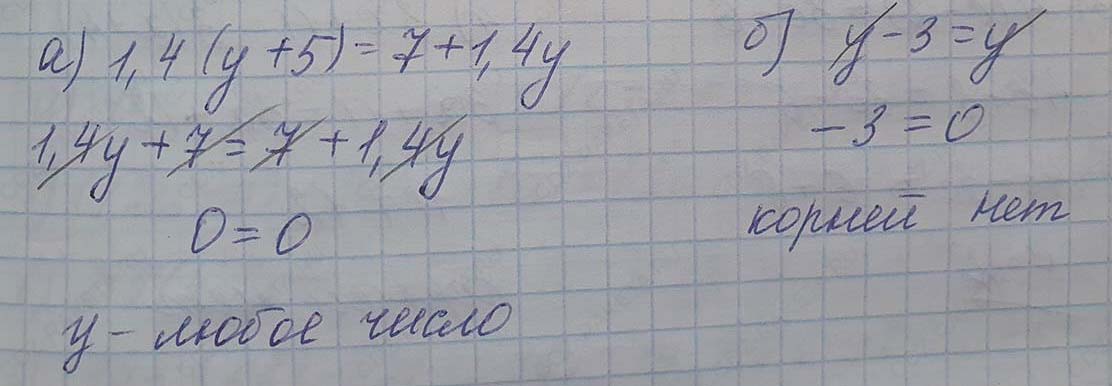 а) 1,4 (y + 5) = 7 + 1,4y
1,4y + 7 = 7 + 1,4y
0 = 0
y - любое число
б) y - 3 = y
- 3 = 0
корней нет